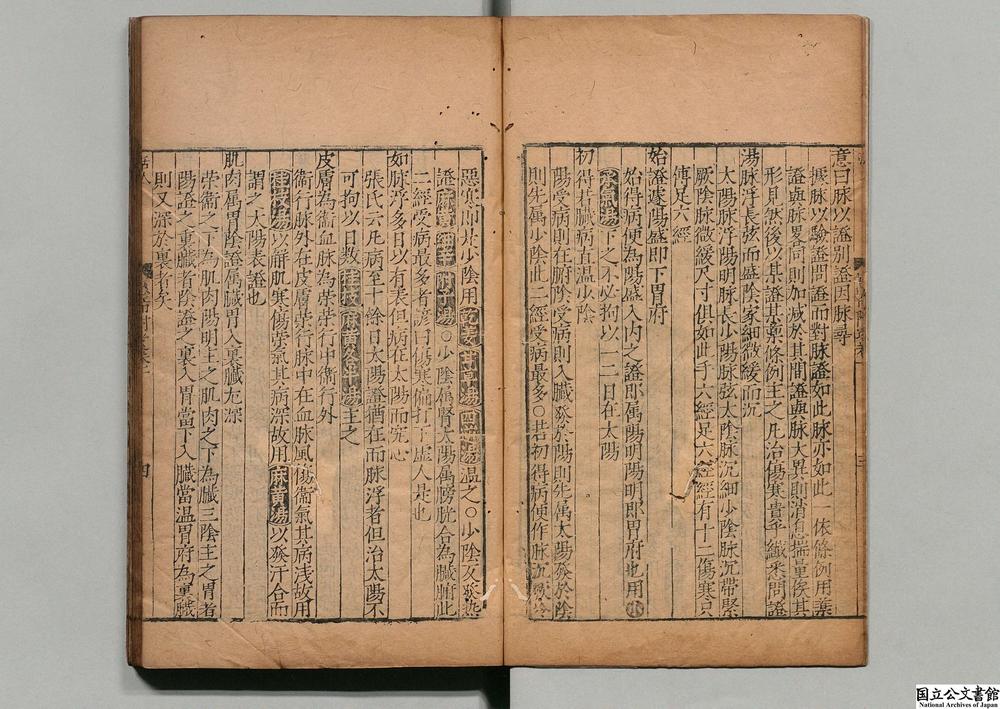 意曰脉以證别證因脉尋
據脉以驗證問證而對脉證如此脉亦如此一依條例用藥
證與脉畧同則加减於其間證與脉大異則消息揣量俟其
形見然後以某證某藥條例主之凡治傷寒貴乎纎悉問證
湯脉浮長弦而盛陰家細微緩而沉
太陽脉浮陽明脉長少陽脉弦太陰脉沉細少陰脉沉帶緊
厥陰脉微緩尺寸俱如此手六經足六經經有十二傷寒只
傳足六經
始證遽陽盛即下胃府
始得病便為陽盛入内之證即属陽明陽明即胃府也用
承氣湯下之不必拘以一二日在太陽
初得若臓病直温少陰
陽受病則在腑陰受病則入臓發於陽則先属太陽發於陰
則先属少陰此二經受病最多○若初得病便作脉沉
惡寒即是少陰用乾姜甘草湯四逆湯温之○少陰反發熱
證麻黄細辛附子湯○少陰属腎太陽属膀胱合為臓腑此
二經受病最多者諺曰傷寒偏打下虚人是也
如脉浮多日以有表但病在太陽而究心
張氏云凡病至十餘日太陽證猶在而脉浮者但治太陽不
可拘以日数桂枝麻黄各半湯主之
皮膚為衞血脉為榮榮行中衞行外
衞行脉外在皮膚榮行脉中在血脉風傷衞氣其病浅故用
桂枝湯以解肌寒傷榮氣其病深故用麻黄湯以發汗合而
謂之太陽表證也
肌肉属胃陰證属臓胃入裏臓尤深
榮衞之下為肌肉陽明主之肌肉之下為臓三陰主之胃者
陽證之裏臓者陰證之裏入胃當下入臓當温胃府為裏臓
則又深於裏者矣
四
国立公文書館
National Archives of Japan